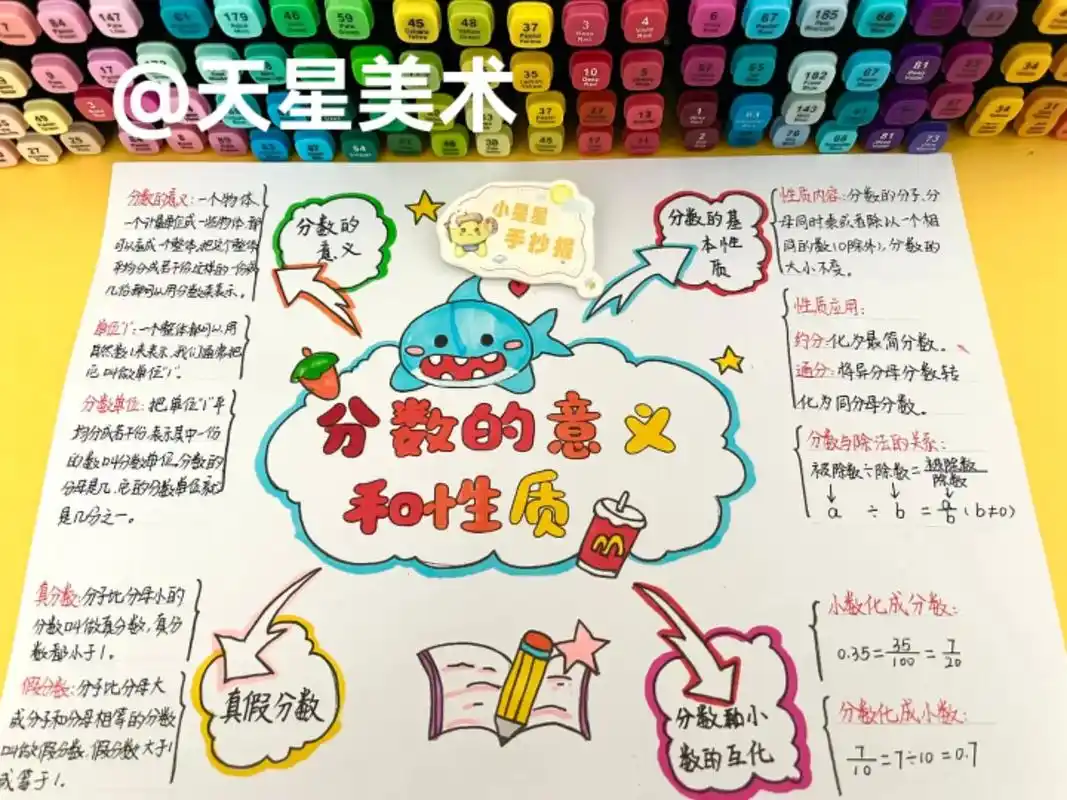 @天星美术
小星星
手抄报
分数的意义
和性质
分数的
意义
分数的意义:一个物体、
一个计量单位或一些物体都
可以看成一个整体,把这个整体
平均分成若干份,这样的一份或
几份都可以用分数来表示。
单位"1":一个整体都可以用
自然数1来表示,我们通常把
它叫做单位"1"。
分数单位:把单位"1"平
均分成若干份,表示其中一份
的数叫分数单位。分数的
分母是几,它的分数单位就
是几分之一。
分数的基
本性
质
性质内容:分数的分子、分
母同时乘或者除以一个相
同的数(0除外),分数的
大小不变。
性质应用:
约分:化为最简分数。
通分:将异分母分数转
化为同分母分数。
分数与除法的关系:
被除数÷除数=被除数/除数
a ÷ b = a/b (b≠0)
真假分数
真分数:分子比分母小的
分数叫做真分数,真分
数都小于1。
假分数:分子比分母大
或分子和分母相等的分数
叫做假分数,假分数大于1
或等于1.
分数和小
数的互化
小数化成分数:
0.35=35/100=7/20
分数化成小数:
7/10=7÷10=0.7